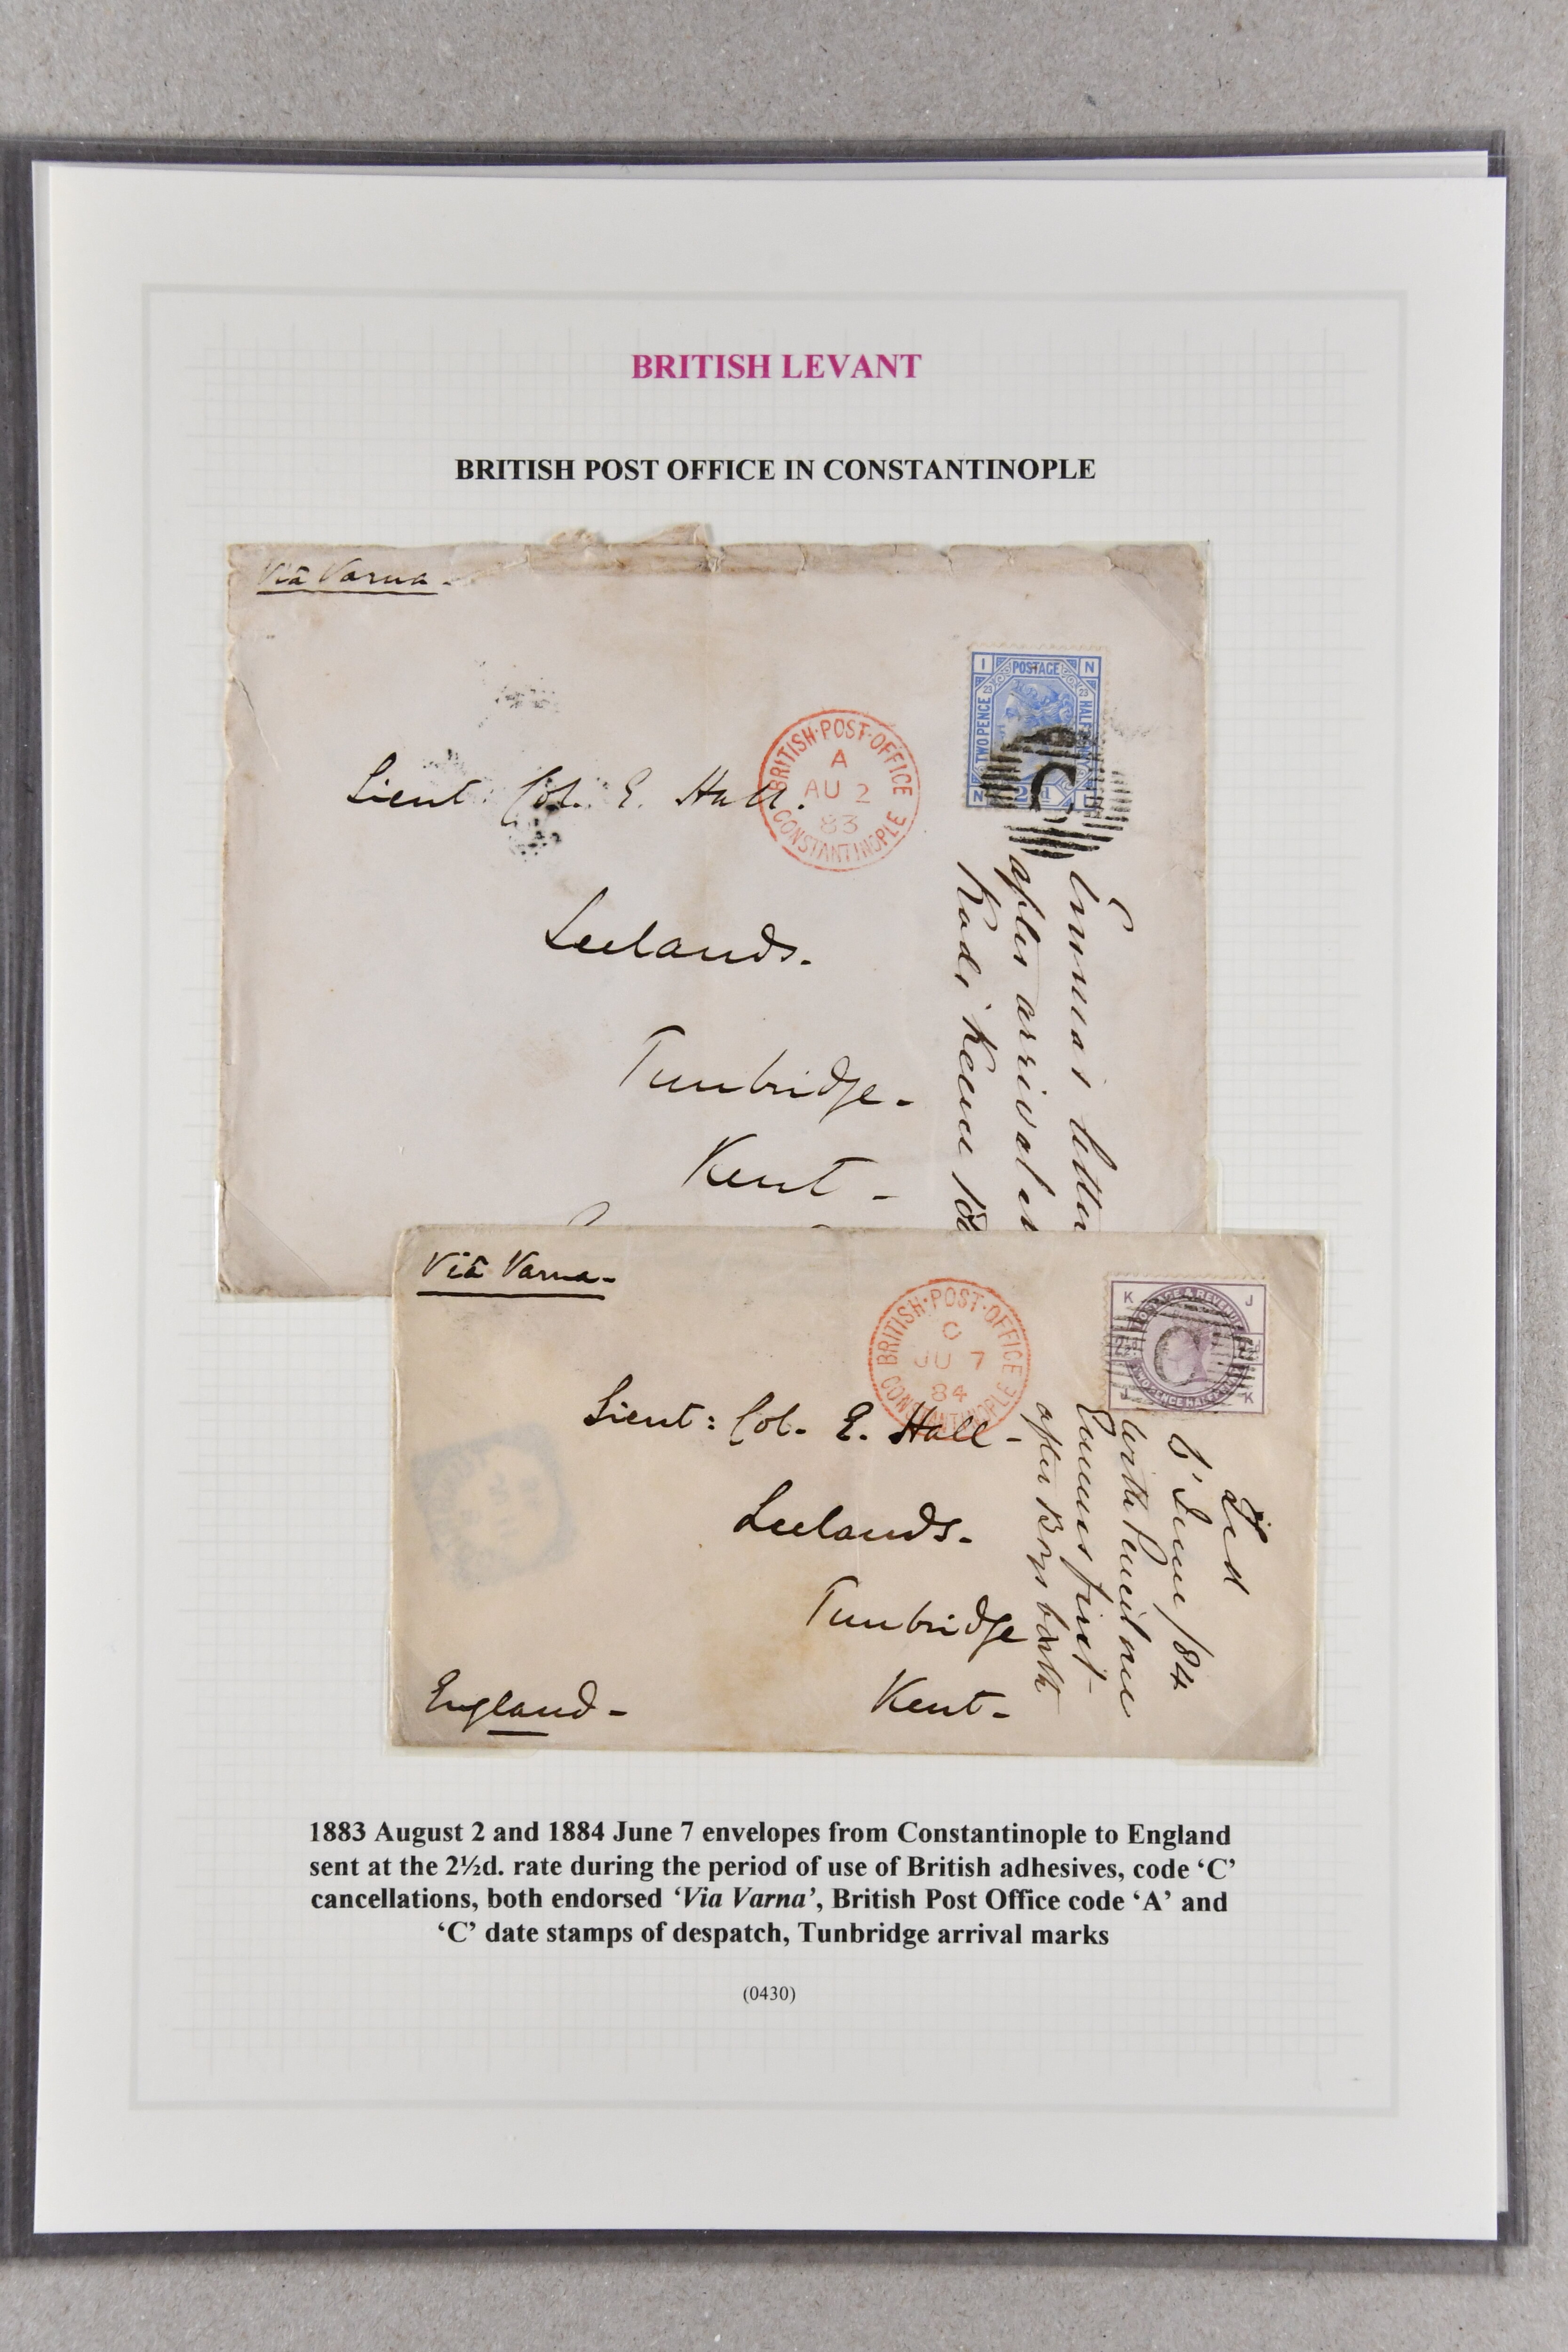 BRITISH LEVANT
BRITISH POST OFFICE IN CONSTANTINOPLE
Via Varna-
I POSTAGE N
23 23
TWO PENCE HALF
N
C
BRITISH·POST·OFFICE
A
AU 2
83
CONSTANTINOPLE
Lieut: Col. E. Hall.
Leelands.
Tunbridge-
Kent-
Emma's letter
after arrival
Via Varna-
K J
J K
C
BRITISH·POST·OFFICE
C
JU 7
84
CONSTANTINOPLE
Lieut: Col. E. Hall-
Leelands.
Tunbridge
Kent-
England-
June/84
with Pencil one
Emma's first
after Boys birth
1883 August 2 and 1884 June 7 envelopes from Constantinople to England
sent at the 2½d. rate during the period of use of British adhesives, code ‘C’
cancellations, both endorsed ‘Via Varna’, British Post Office code ‘A’ and
‘C’ date stamps of despatch, Tunbridge arrival marks
(0430)